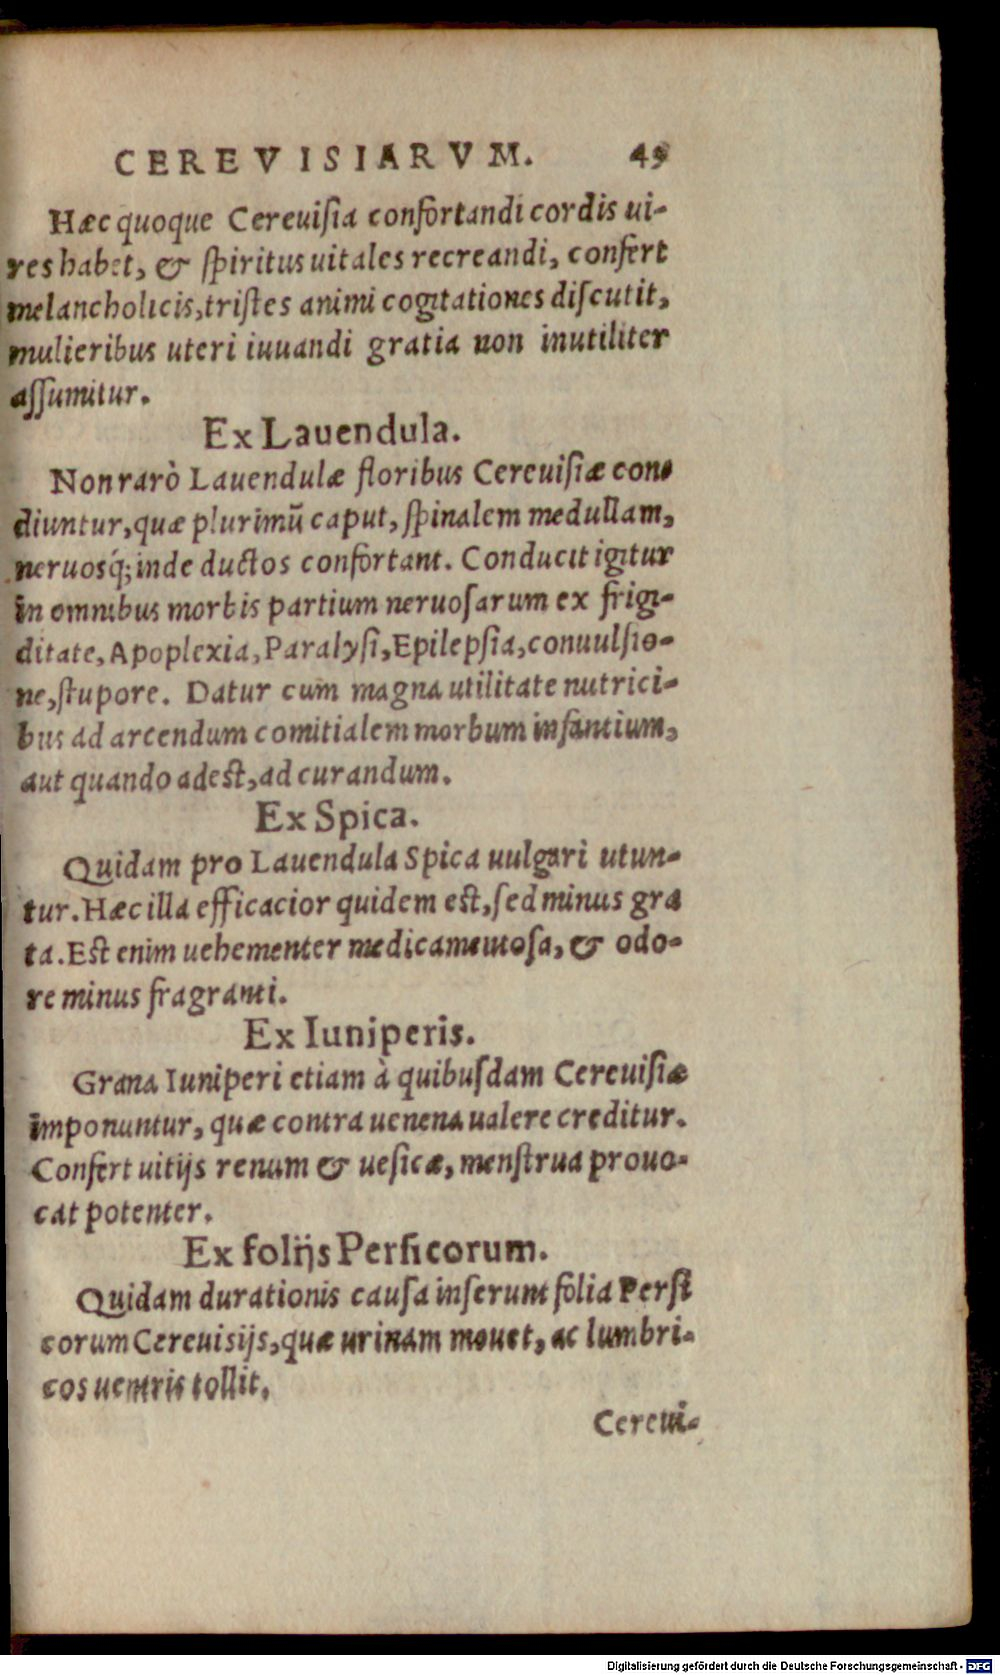 CEREVISIARVM. 49
Hæc quoque Cereuisia confortandi cordis ui-
res habet, & spiritus uitales recreandi, confert
melancholicis, tristes animi cogitationes discutit,
mulieribus uteri iuuandi gratia non inutiliter
assumitur.
Ex Lauendula.
Non rarò Lauendulæ floribus Cereuisiæ con-
diuntur, quæ plurimũ caput, spinalem medullam,
neruosq́; inde ductos confortant. Conducit igitur
in omnibus morbis partium neruosarum ex frigi-
ditate, Apoplexia, Paralysi, Epilepsia, conuulsio-
ne, stupore. Datur cum magna utilitate nutrici-
bus ad arcendum comitialem morbum infantium,
aut quando adest, ad curandum.
Ex Spica.
Quidam pro Lauendula Spica uulgari utun-
tur. Hæc illa efficacior quidem est, sed minus gra
ta. Est enim uehementer medicamentosa, & odo-
re minus fragranti.
Ex Iuniperis.
Grana Iuniperi etiam à quibusdam Cereuisiæ
imponuntur, quæ contra uenena ualere creditur.
Confert uitijs renum & uesicæ, menstrua prouo-
cat potenter.
Ex folijs Persicorum.
Quidam durationis causa inserunt folia Persi
corum Cereuisijs, quæ urinam mouet, ac lumbri-
cos uentris tollit.
Cereui-
Digitalisierung gefördert durch die Deutsche Forschungsgemeinschaft - DFG